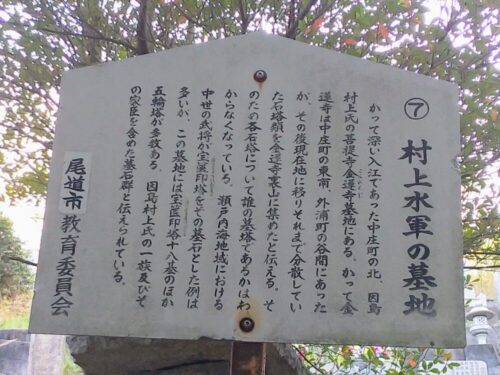 ⑦ 村上水軍の墓地
かつて深い入江であった中庄町の北、因島
村上氏の菩提寺金蓮寺墓地にある。かって金
蓮寺は中庄町の東南、外浦町の谷間にあった
が、その後現在地に移りそれまで分散してい
た石塔類を金蓮寺裏山に集めたと伝える。そ
のため各石塔について誰の墓塔であるかはわ
からなくなっている。瀬戸内海地域における
中世の武将が宝篋印塔をその墓石とした例は
多いが、この墓地には宝篋印塔十八基のほか
五輪塔が多数ある。因島村上氏の一族及びそ
の家臣を含めた墓石群と伝えられている。
尾道市教育委員会